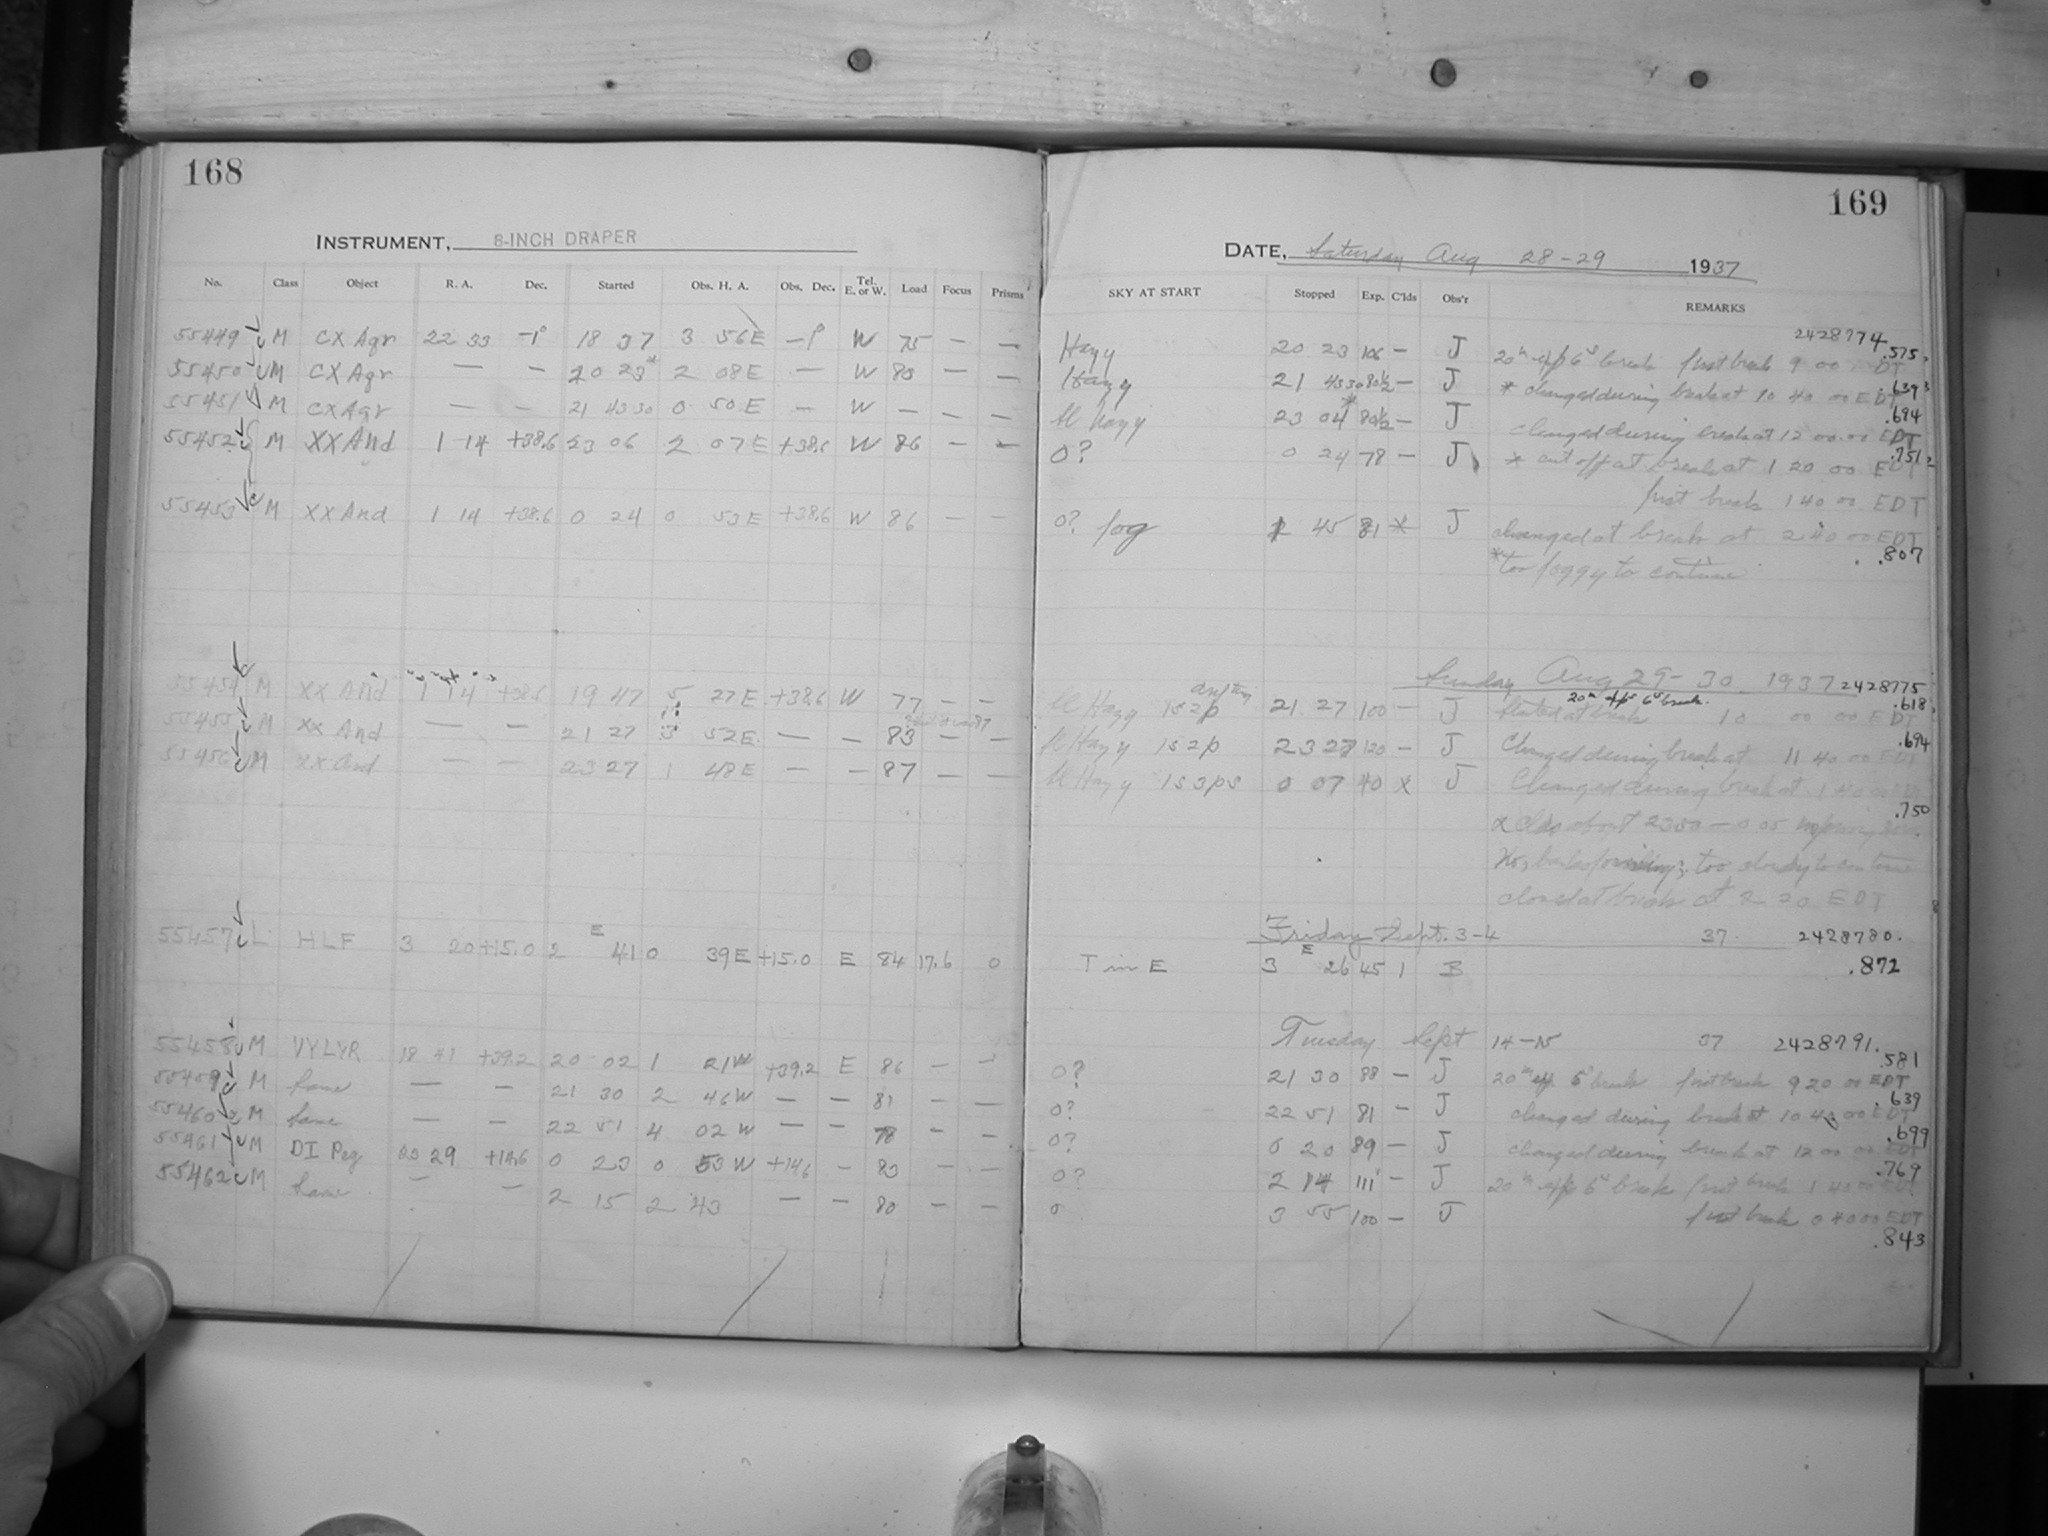 168
INSTRUMENT, 8-INCH DRAPER
No. Class Object R. A. Dec. Started Obs. H. A. Obs. Dec. Tel. E. or W. Load Focus Prisms
55449 M CX Aqr 22 33 -1° 18 37 3 56 E -1° W 75 — —
55450 M CX Aqr — — 20 23* 2 08 E — W 80 — —
55451 M CX Aqr — — 21 43 30 0 50 E — W — — —
55452 M XX And 1 14 +38.6 23 06 2 07 E +38.6 W 86 — —
55453 M XX And 1 14 +38.6 0 24 0 53 E +38.6 W 86 — —
55454 M XX And 1 14 +38.6 19 47 5 27 E +38.6 W 77 — —
55455 M XX And — — 21 27 3 52 E — — 83 — —
55456 M XX And — — 23 27 1 48 E — — 87 — —
55457 L HLF 3 20 +15.0 2 E 41 0 39 E +15.0 E 84 17.6 0
55458 M VYLYR 18 41 +39.2 20 02 1 21 W +39.2 E 86 — —
55459 M Same — — 21 30 2 46 W — — 81 — —
55460 M Same — — 22 51 4 02 W — — 78 — —
55461 M DI Peg 29 +14.6 0 23 0 53 W +14.6 — 80 — —
55462 M Same — — 2 15 2 43 — — 80 — —
169
DATE, Saturday Aug 28-29 1937
SKY AT START Stopped Exp. C'lds Obs'r REMARKS
2428774.575
Hazy 20 23 106 — J 20m exp 6s break first break 9 00 EDT
.639
Hazy 21 43 30 80½ — J * changed during break at 10 40 00 EDT
.694
sl hazy 23 04* 80½ — J changed during break at 12 00 00 EDT
.751
0? 0 24 78 — J * cut off at break at 1 20 00 EDT
first break 1 40 00 EDT
0? fog 45 81 * J changed at break at 2 40 00 EDT
.807
* too foggy to continue
Sunday Aug 29-30 1937 2428775
20m exps 6s break .618
sl Hazy 1s2p 21 27 100 — J Started at break 10 00 00 EDT
.694
sl Hazy 1s2p 23 27 120 — J Changed during break at 11 40 00 EDT
sl Hazy 1s3ps 0 07 40 x J Changed during break at 1 40 00
.750
x Clds about 2350 — 0 05
too cloudy to continue
closed at break at 2 20 EDT
Friday Sept. 3-4 37 2428780.
T in E 3 E 26 45 1 B .872
Tuesday Sept 14-15 37 2428791.
.581
0? 21 30 88 — J 20m exp. 6s break first break 9 20 00 EDT
.639
0? 22 51 81 — J changed during break at 10 40 00 EDT
.699
0? 0 20 89 — J changed during break at 12 00 00 EDT
.769
0? 2 14 111 — J 20m exp 6s break first break 1 40 00 EDT
0 3 55 100 — J first break 0 40 00 EDT
.843